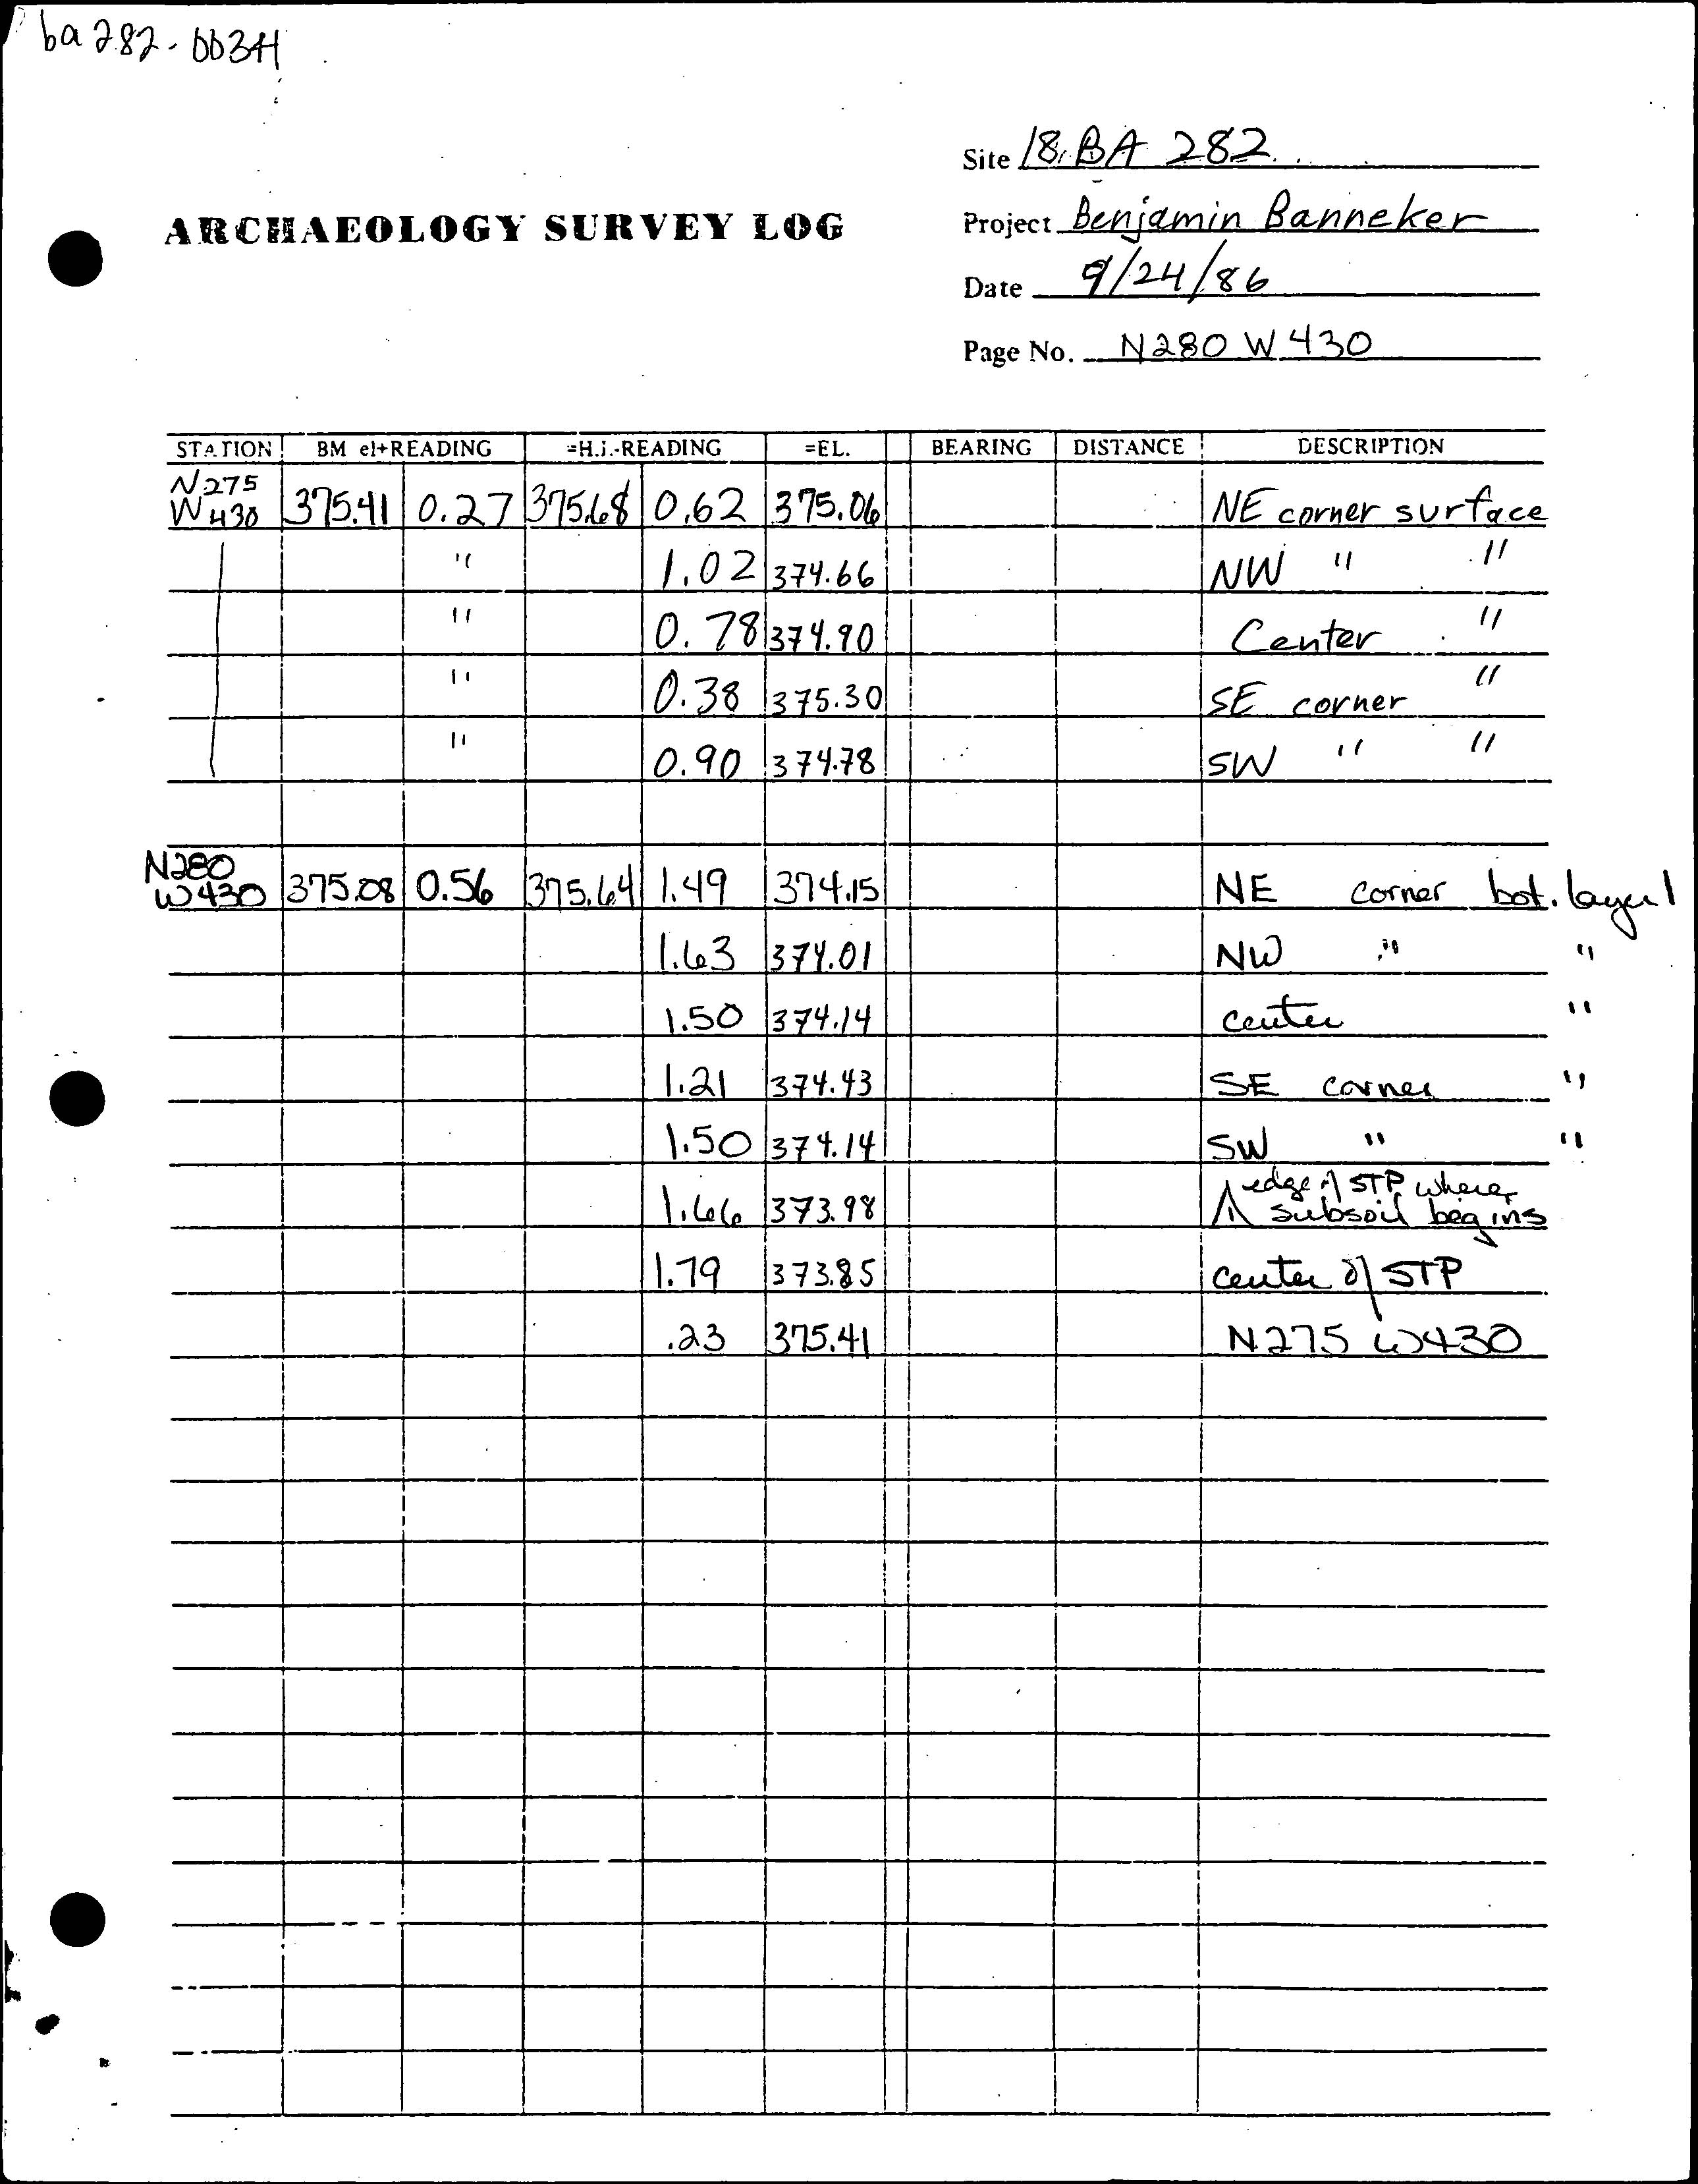 ba282-0034
Site 18 BA 282
ARCHAEOLOGY SURVEY LOG
Project Benjamin Banneker
Date 9/24/86
Page No. N280 W430
STATION BM el+READING =H.I.-READING =EL. BEARING DISTANCE DESCRIPTION
N275
W430 375.41 0.27 375.68 0.62 375.06 NE corner surface
" 1.02 374.66 NW " "
" 0.78 374.90 Center "
" 0.38 375.30 SE corner "
" 0.90 374.78 SW " "
N280
W430 375.08 0.56 375.64 1.49 374.15 NE corner bot. layer 1
1.63 374.01 NW " "
1.50 374.14 center "
1.21 374.43 SE corner "
1.50 374.14 SW " "
edge of STP where
1.66 373.98 subsoil begins
1.79 373.85 center of STP
.23 375.41 N275 W430